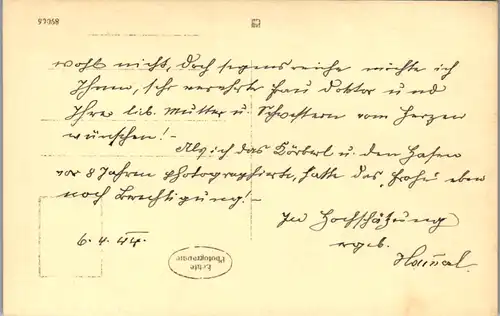 wohl nicht, doch segensreiche möchte ich
Ihnen, sehr verehrte Frau Doktor und
Ihre lieb. Mutter u. Schwestern vom Herzen
wünschen! -
Als ich das Körberl u. den Hasen
vor 8 Jahren photographierte, hatte das „frohe“ eben
noch Berechtigung! -
In Hochschätzung
ergeb.
6. 4. 44.
Echte
Photographie